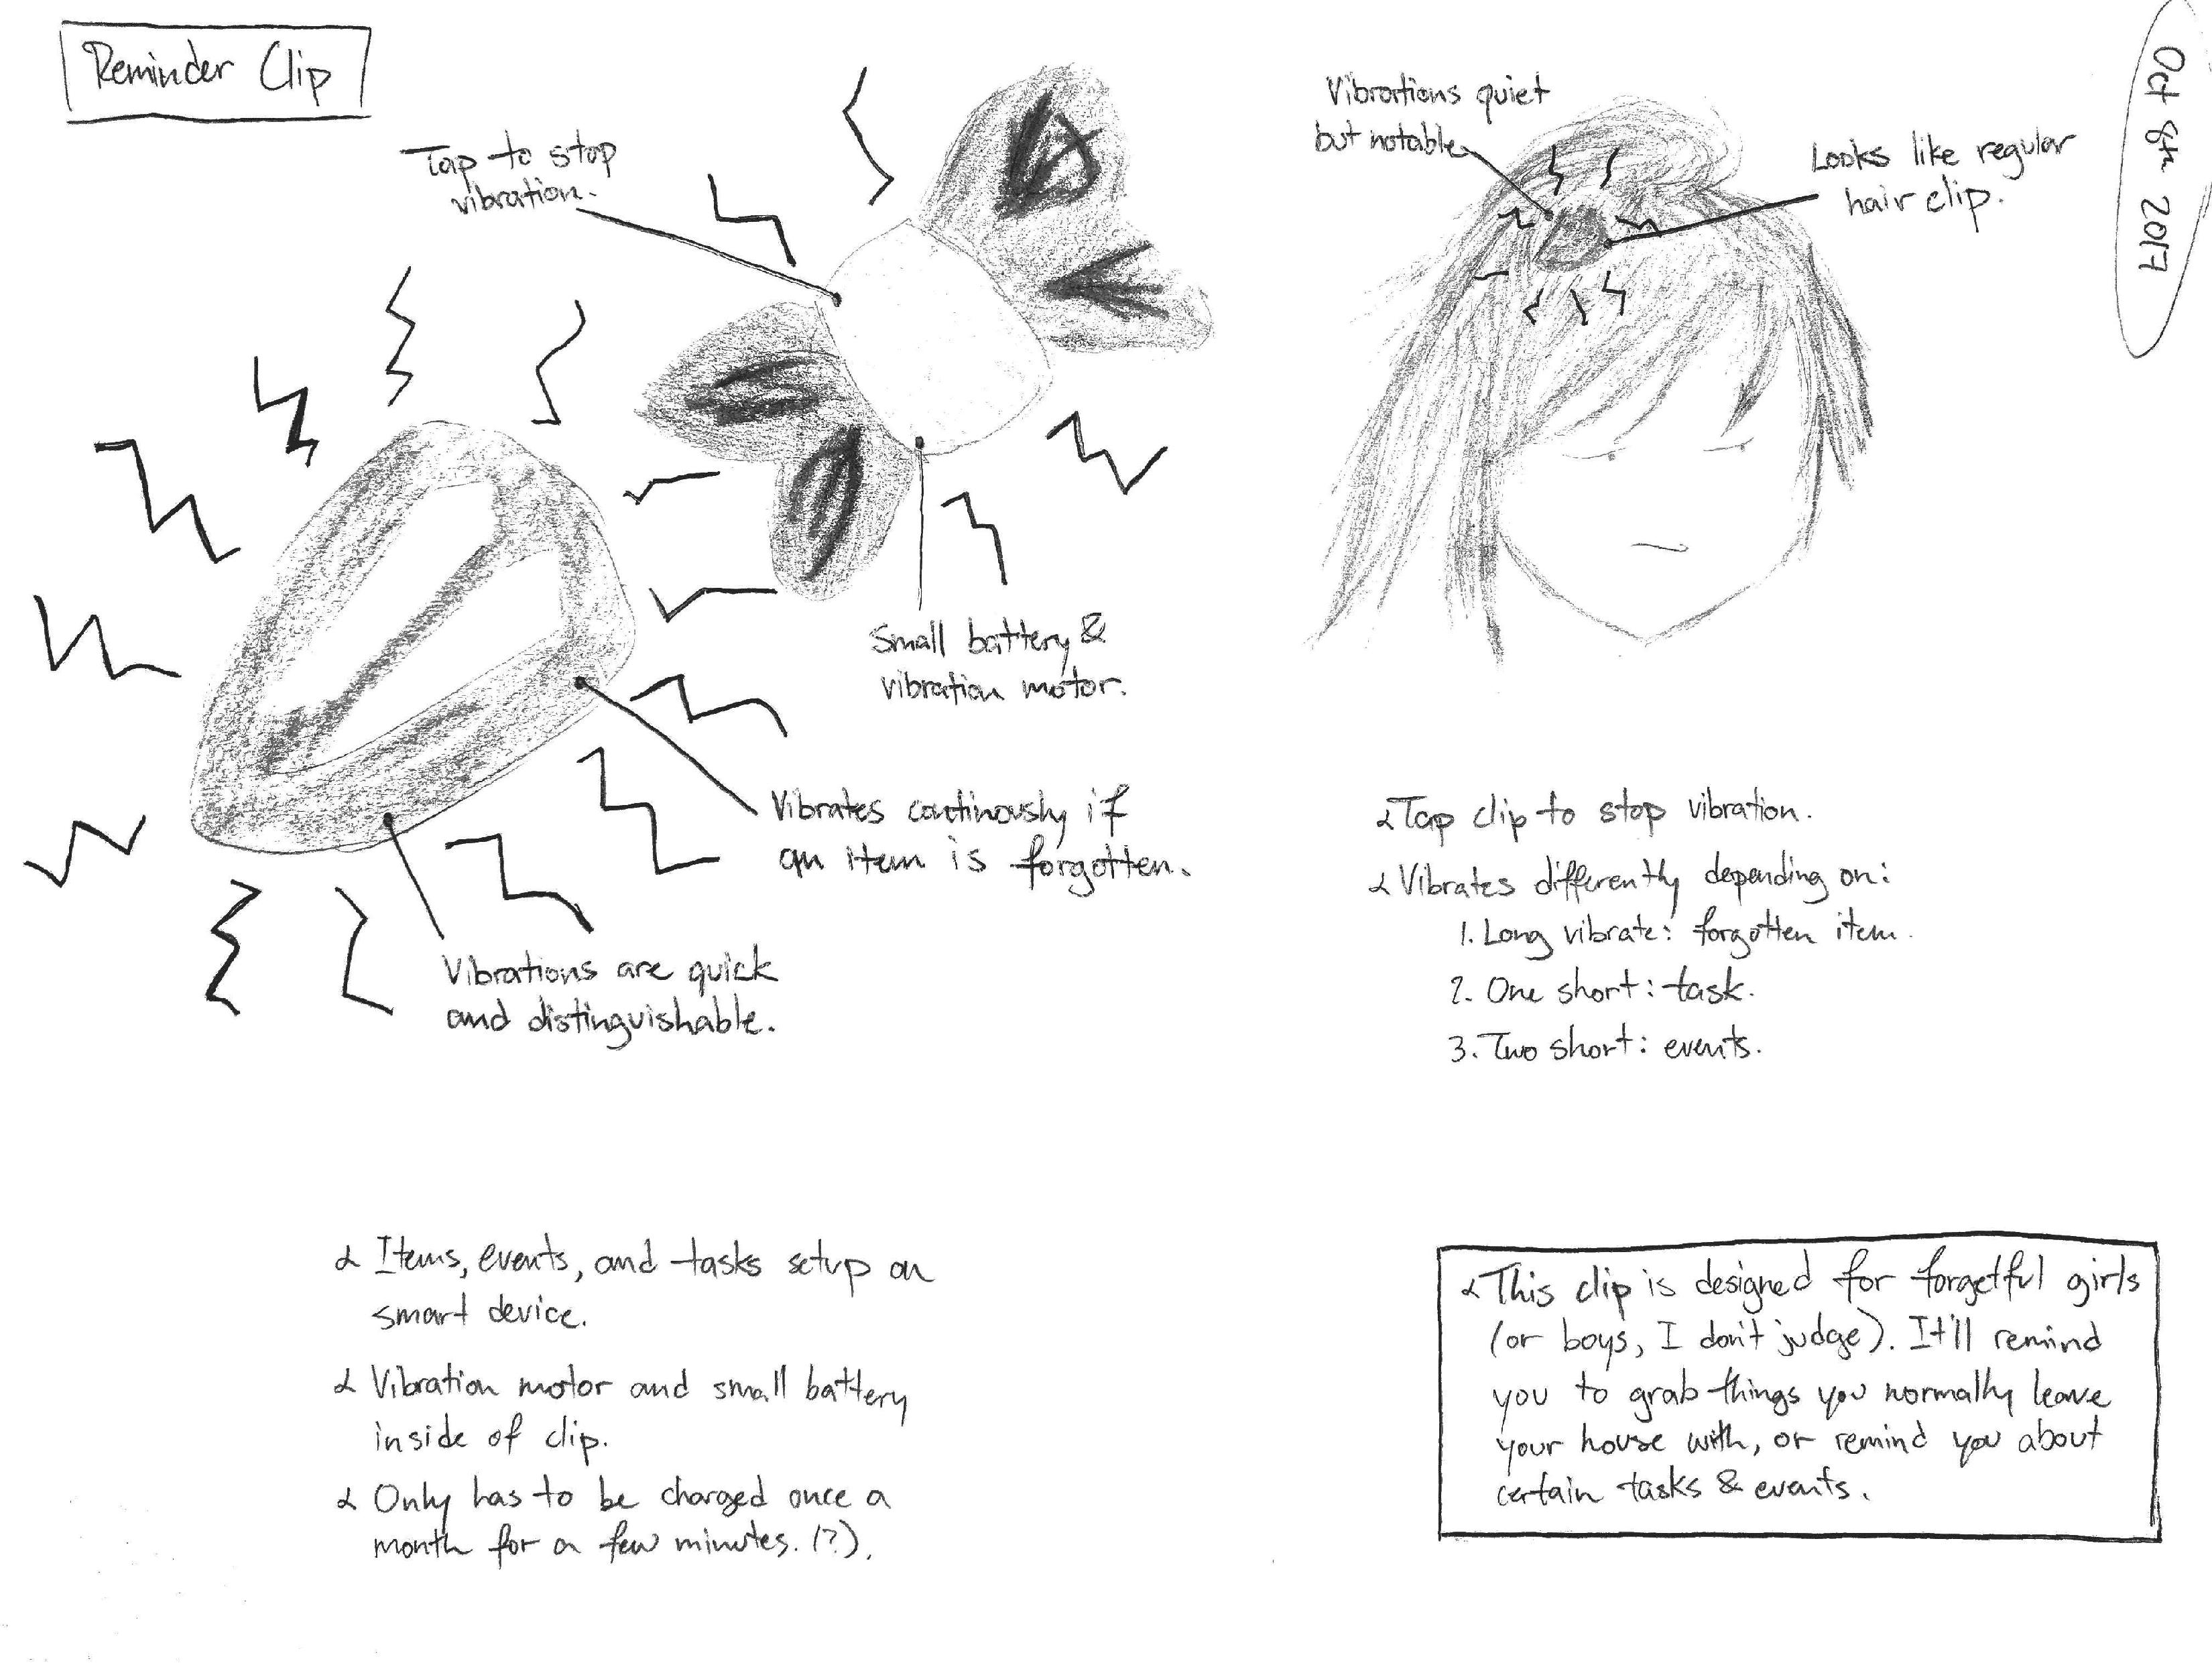 Reminder Clip
Tap to stop
vibration.
Small battery &
vibration motor.
Vibrates continously if
an item is forgotten.
Vibrations are quick
and distinguishable.
Vibrations quiet
but notable
Looks like regular
hair clip.
Oct 8th 2017
Tap clip to stop vibration.
Vibrates differently depending on:
1. Long vibrate: forgotten item.
2. One short: task.
3. Two short: events.
Items, events, and tasks setup on
smart device.
Vibration motor and small battery
inside of clip.
Only has to be charged once a
month for a few minutes. (?).
This clip is designed for forgetful girls
(or boys, I don't judge). It'll remind
you to grab things you normally leave
your house with, or remind you about
certain tasks & events.